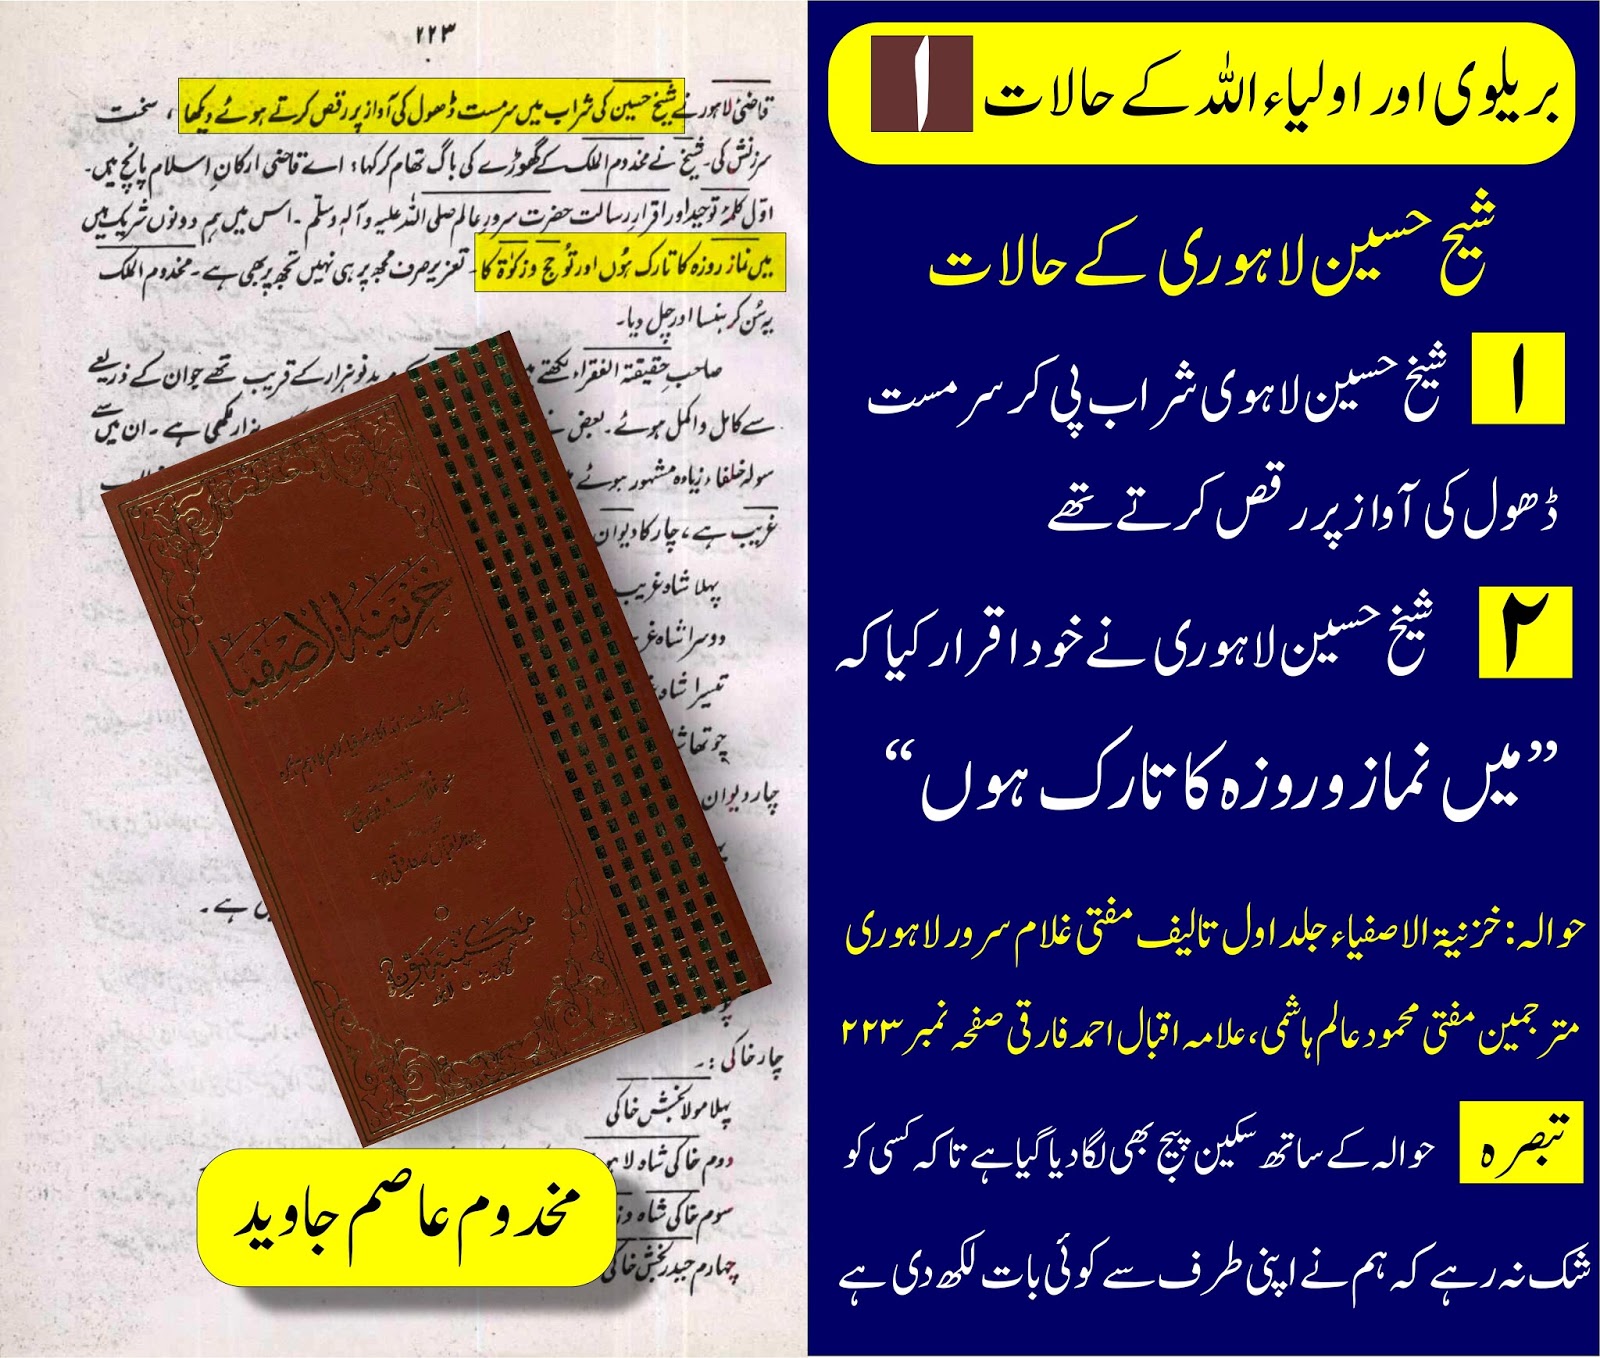 بریلوی اور اولیاء اللہ کے حالات ۱
شیخ حسین لاہوری کے حالات
۱ شیخ حسین لاہوی شراب پی کر سرمست
ڈھول کی آواز پر رقص کرتے تھے
۲ شیخ حسین لاہوری نے خود اقرار کیا کہ
”میں نماز و روزہ کا تارک ہوں“
حوالہ: خزنیۃ الاصفیاء جلد اول تالیف مفتی غلام سرور لاہوری
مترجمین مفتی محمود عالم ہاشمی، علامہ اقبال احمد فارقی صفحہ نمبر ۲۲۳
تبصرہ حوالہ کے ساتھ سکین پیج بھی لگا دیا گیا ہے تاکہ کسی کو
شک نہ رہے کہ ہم نے اپنی طرف سے کوئی بات لکھ دی ہے
۲۲۳
قاضئ لاہور نے شیخ حسین کی شراب میں سرمست ڈھول کی آواز پر رقص کرتے ہوئے دیکھا، سخت
سرزنش کی۔ شیخ نے مخدوم الملک کے گھوڑے کی باگ تھام کر کہا: اے قاضی ارکانِ اسلام پانچ ہیں۔
اوّل کلمۂ توحید اور اقرارِ رسالت حضرت سرورِ عالم صلی اللہ علیہ وآلہٖ وسلّم۔ اس میں ہم دونوں شریک ہیں
میں نماز روزہ کا تارک ہُوں اور تُو حج و زکوٰۃ کا۔ تعزیر صرف مجھ پر ہی نہیں تجھ پر بھی ہے۔ مخدوم الملک
یہ سُن کر ہنسا اور چل دیا۔
صاحبِ حقیقۃ الفقراء لکھتے ید نو ہزار کے قریب تھے جو ان کے ذریعے
سے کامل و اکمل ہوئے۔ بعض نے زار لکھی ہے۔ ان میں سے
سولہ خلفاء زیادہ مشہور ہوئے
غریب ہے، چار کا دیوان
پہلا شاہ غریب
دوسرا شاہ غر
تیسرا شاہ
چوتھا شا
چار دیوان
ہے۔
چار خاکی :۔
پہلا مولا بخش خاکی
دوم خاکی شاہ لاہو
سوم خاکی شاہ وز
چہارم حیدر بخش خاکی
خزینۃ الاصفیا
مکتبہ نبویہ
مخدوم عاصم جاوید